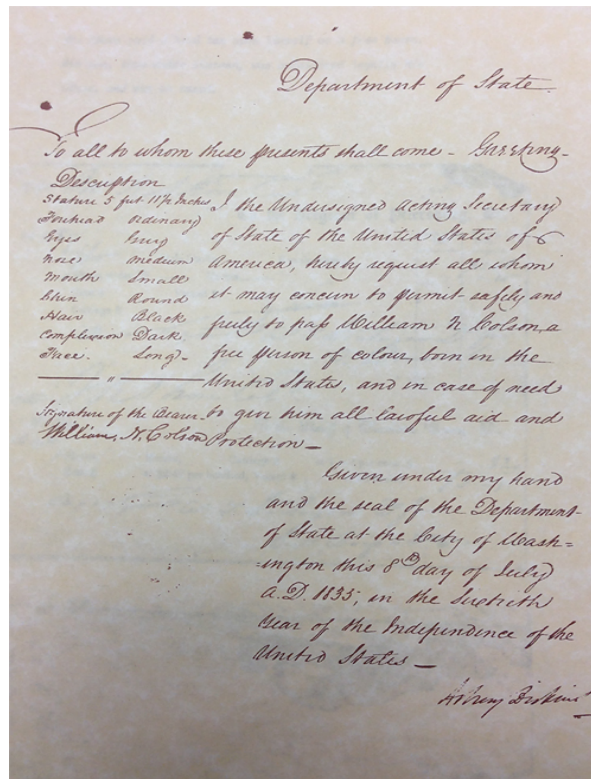 Department of State.
To all to whom these presents shall come - Greeting -
Description
Stature 5 feet 11½ Inches
Forehead Ordinary
Eyes Grey
Nose Medium
Mouth Small
Chin Round
Hair Black
Complexion Dark
Face. Long -
Signature of the Bearer
William, N. Colson
I the Undersigned Acting Secretary
of State of the United States of
America, hereby request all whom
it may concern to permit safely and
freely to pass William N Colson, a
free person of colour, born in the
United States, and in case of need
to give him all lawful aid and
Protection -
Given under my hand
and the seal of the Department
of State at the City of Wash=
=ington this 8th day of July
A.D. 1835, in the
Year of the Independence of the
United States -